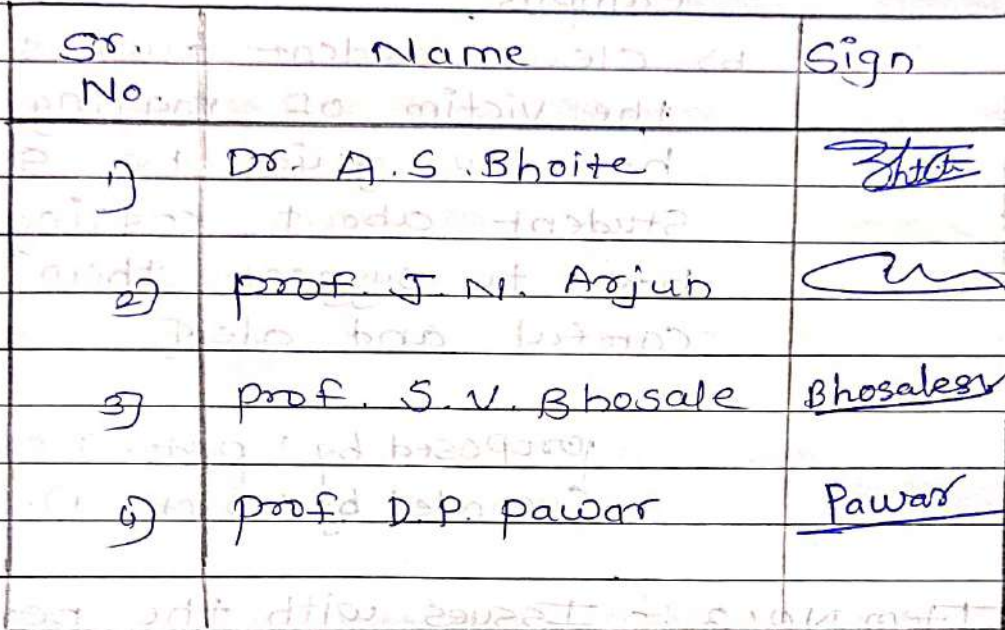 Sr. No. Name Sign
1) Dr. A. S. Bhoite Bhoite
2) prof. J. N. Arjun
3) prof. S. V. Bhosale Bhosalesv
4) prof. D. P. pawar Pawar